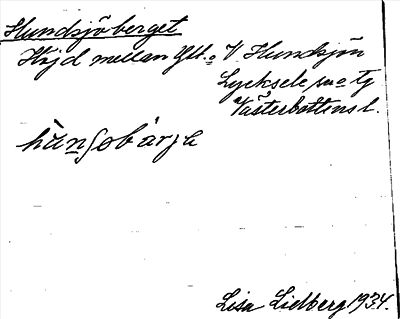 Hundsjöberget
Höjd mellan Ytt. o V. Hundsjön
Lycksele sn o tg
Västerbottens l.
hùnʃobàrje
Lisa Lidberg 1934.